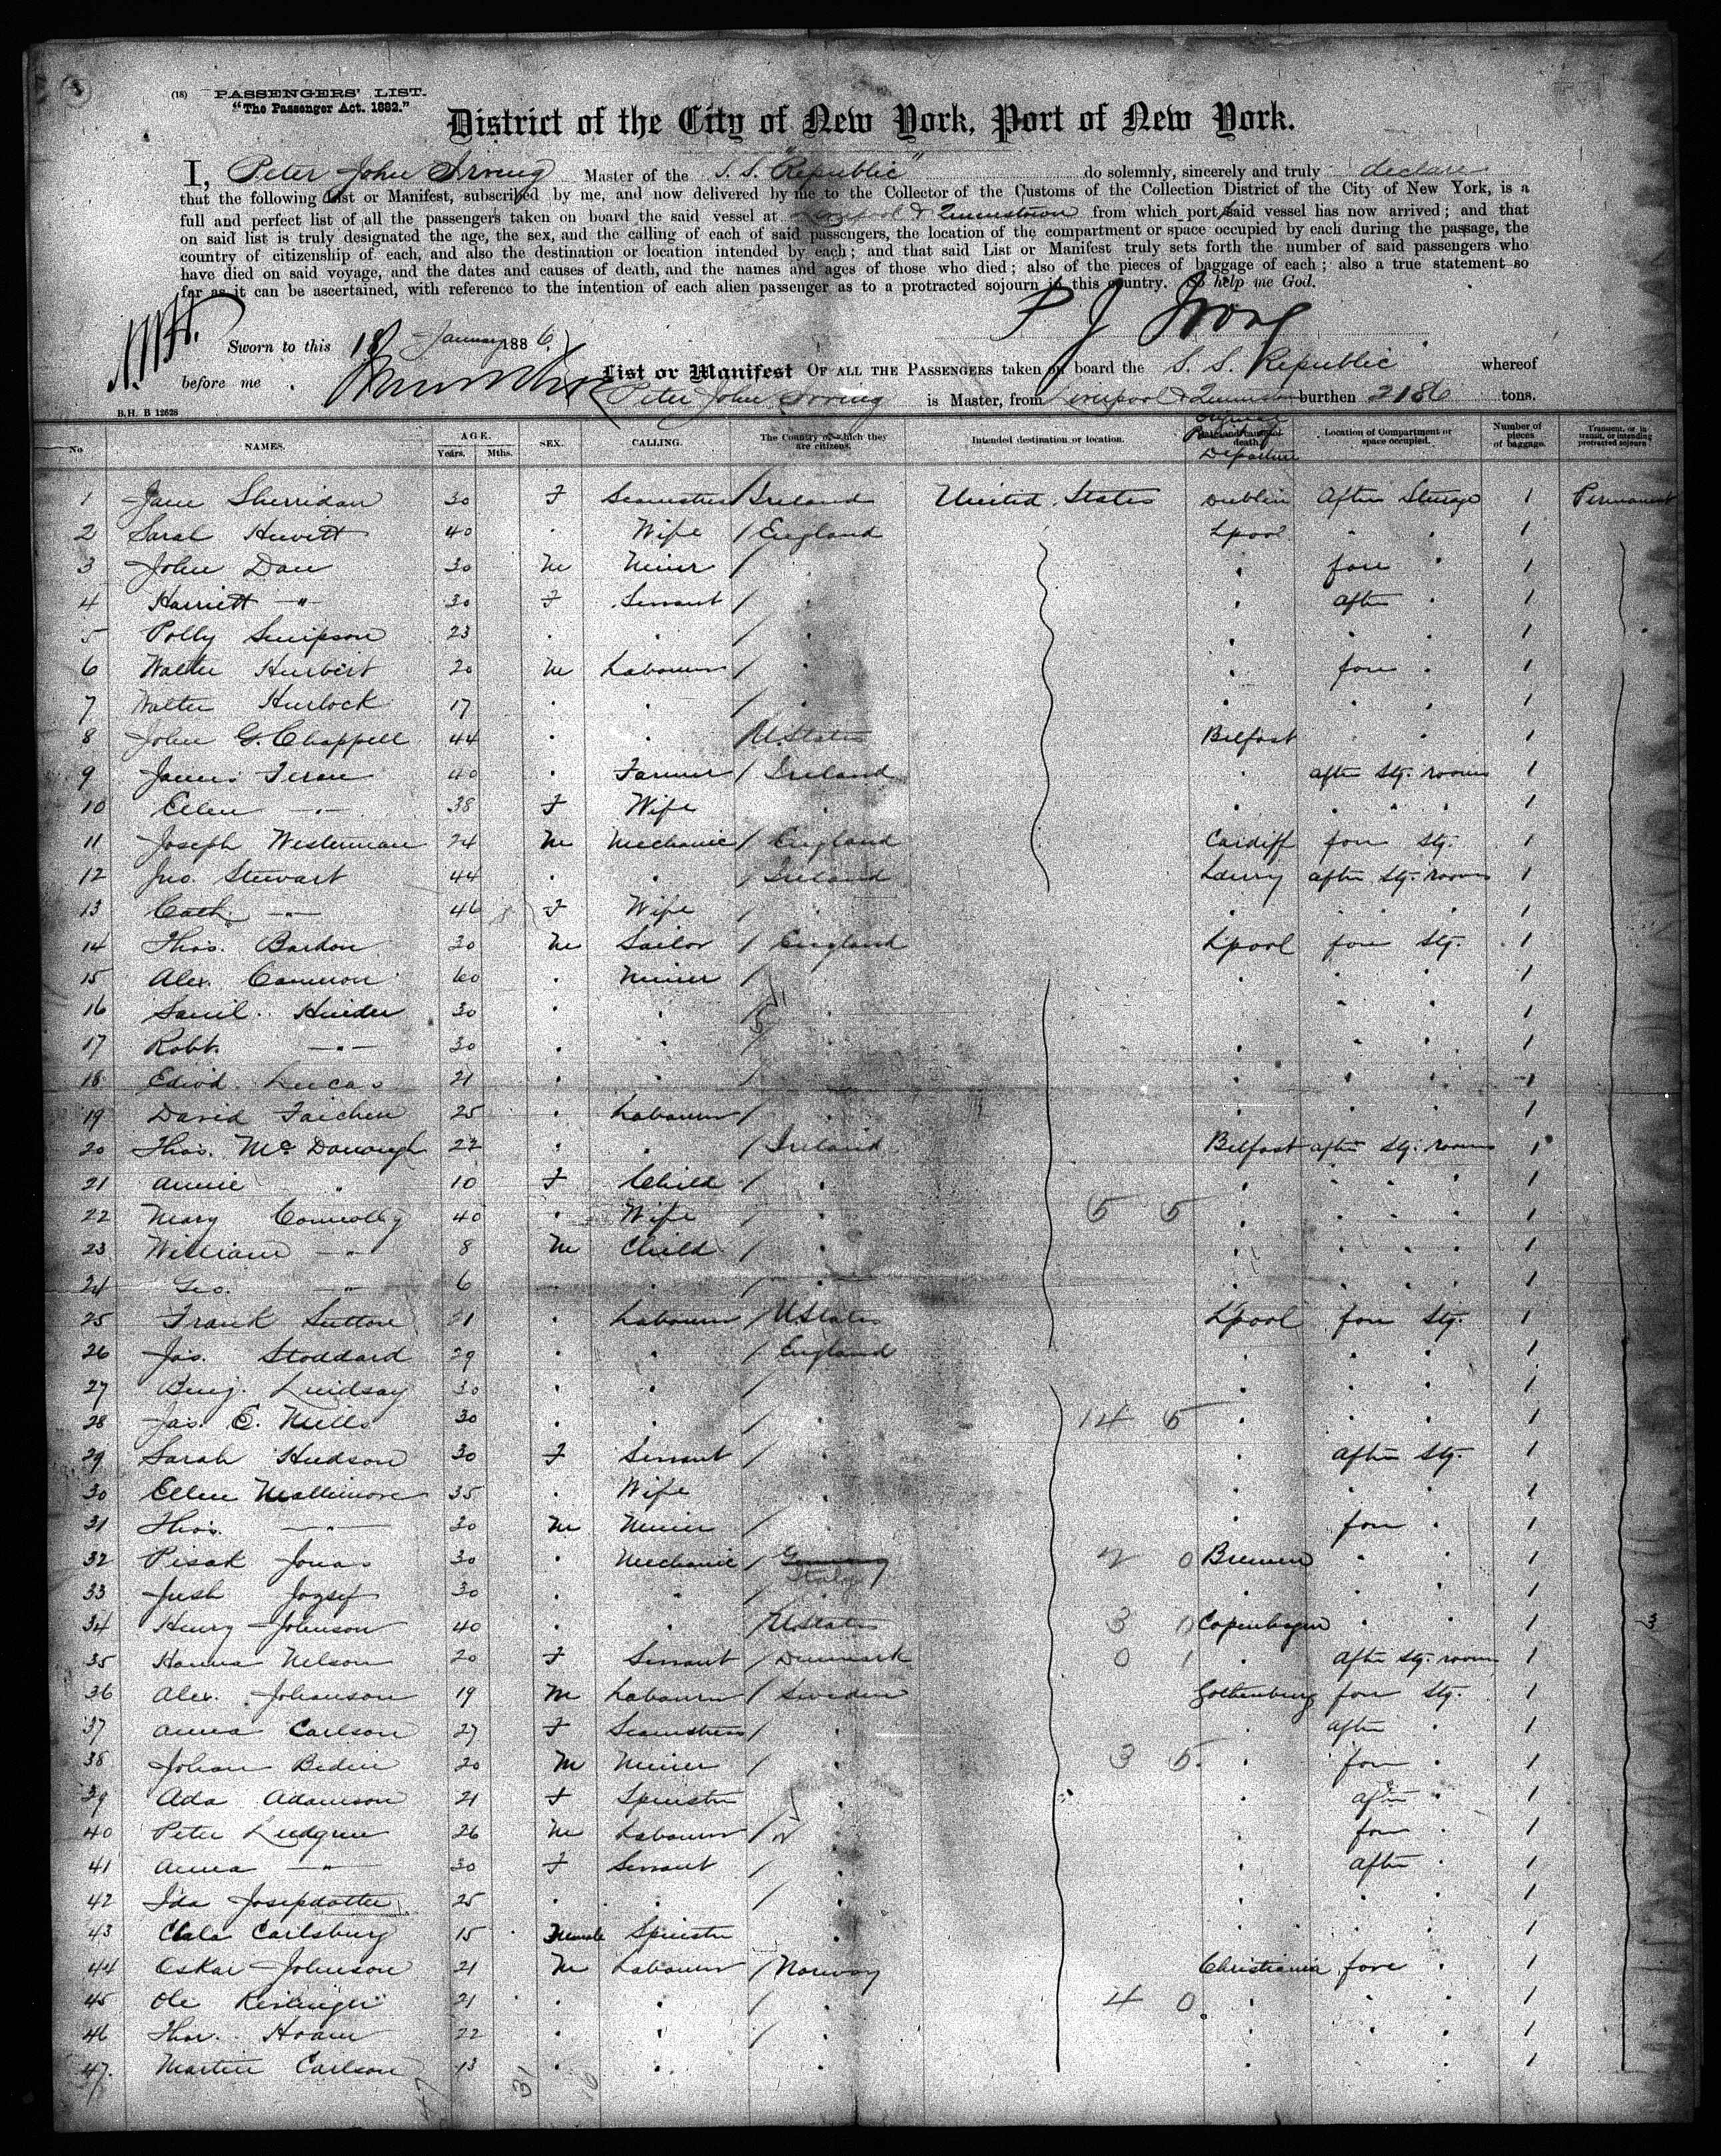 (18) PASSENGERS' LIST.
"The Passenger Act. 1882."
District of the City of New York, Port of New York.
I, Peter John Irving Master of the S.S. "Republic" do solemnly, sincerely and truly declare
that the following List or Manifest, subscribed by me, and now delivered by me to the Collector of the Customs of the Collection District of the City of New York, is a
full and perfect list of all the passengers taken on board the said vessel at Liverpool & Queenstown from which port said vessel has now arrived; and that
on said list is truly designated the age, the sex, and the calling of each of said passengers, the location of the compartment or space occupied by each during the passage, the
country of citizenship of each, and also the destination or location intended by each; and that said List or Manifest truly sets forth the number of said passengers who
have died on said voyage, and the dates and causes of death, and the names and ages of those who died; also of the pieces of baggage of each; also a true statement so
far as it can be ascertained, with reference to the intention of each alien passenger as to a protracted sojourn in this country. So help me God.
P J Irving
Sworn to this 18 January 1886
before me
List or Manifest OF ALL THE PASSENGERS taken on board the S. S. Republic whereof
Peter John Irving is Master, from Liverpool & Queenstown burthen 2186 tons.
B.H. B 12628
No NAMES. AGE. Years. Mths. SEX. CALLING. The Country of which they are citizens. Intended destination or location. Departure Location of Compartment or space occupied. Number of pieces of baggage. Transient, or in transit, or intending protracted sojourn
1 Jane Sherridan 30 F Seamstress / Ireland United States Dublin After Steerage 1 Permanent
2 Sarah Hewitt 40 " Wife / England Lpool " " 1
3 John Dan 30 M Miner / " " fore " 1
4 Harriett —"— 30 F Servant / " " after " 1
5 Polly Simpson 23 " " / " " " " 1
6 Walter Hurbert 20 M Labourer / " " fore " 1
7 Walter Hurlock 17 " " / " " " " 1
8 John G. Chappell 44 " " / U.States Belfast " " 1
9 James 40 " Farmer / Ireland " after Stg. rooms 1
10 Ellen —"— 38 F Wife " " " " " 1
11 Joseph Westerman 24 M Mechanic / England Cardiff fore Stg. 1
12 Jno. Stewart 44 " " / Ireland Lderry after Stg. rooms 1
13 Cath. —"— 46 F Wife / " " " " " 1
14 Thos. Bardon 30 M Sailor / England Lpool fore Stg. 1
15 Alex. Cameron 60 " Miner / " " " " 1
16 Saml. 30 " " / " " " " 1
17 Robt. —"— 30 " " / " " " " 1
18 Edwd. Lucas 21 " " / " " " " 1
19 David 25 " Labourer / " " " " 1
20 Thos. McDonough 22 " " / Ireland Belfast after Stg. rooms 1
21 Annie " 10 F Child / " " " " " 1
22 Mary Connolly 40 " Wife / " 5 5 " " " " 1
23 William —"— 8 M Child / " " " " " 1
24 Geo. —"— 6 " " / " " " " " 1
25 Frank Sutton 21 " Labourer / UStates Lpool fore Stg. 1
26 Jas. Stoddard 29 " " / England " " " 1
27 Benj. Lindsay 30 " " / " " " " 1
28 Jas. E. Mills 30 " " / " 14 5 " " " 1
29 Sarah Hudson 30 F Servant / " " After Stg. 1
30 Ellen Mallimore 35 " Wife " " " " 1
31 Thos. —"— 30 M Miner / " " fore " 1
32 Pisak Jonas 30 " Mechanic / Germany Italy 2 0 Bremen " " 1
33 Jush Jozsef 30 " " / " " " " 1
34 Henry Johnson 40 " " / UStates 3 0 Copenhagen " " 1 3
35 Hanna Nelson 20 F Servant / Denmark 0 1 " After Stg. rooms 1
36 Alex. Johanson 19 M Labourer / Sweden Gothenburg fore Stg. 1
37 Anna Carlson 27 F Seamstress / " " after " 1
38 Johan Bedin 20 M Miner / " 3 5 " fore " 1
39 Ada Adamson 21 F Spinster " " after " 1
40 Peter Lindgren 26 M Labourer / " " fore " 1
41 Anna —"— 30 F Servant / " " after " 1
42 Ida Josepdotter 25 " " / " " " " 1
43 Clala Carlsburg 15 Female Spinster " " " " 1
44 Oskar Johnson 21 M Labourer / Norway Christiania fore " 1
45 Ole 21 " " / " 4 0 " " " 1
46 Thor. 22 " " / " " " " 1
47. Martin Carlson 13 " " " " " " 1
47 31 16